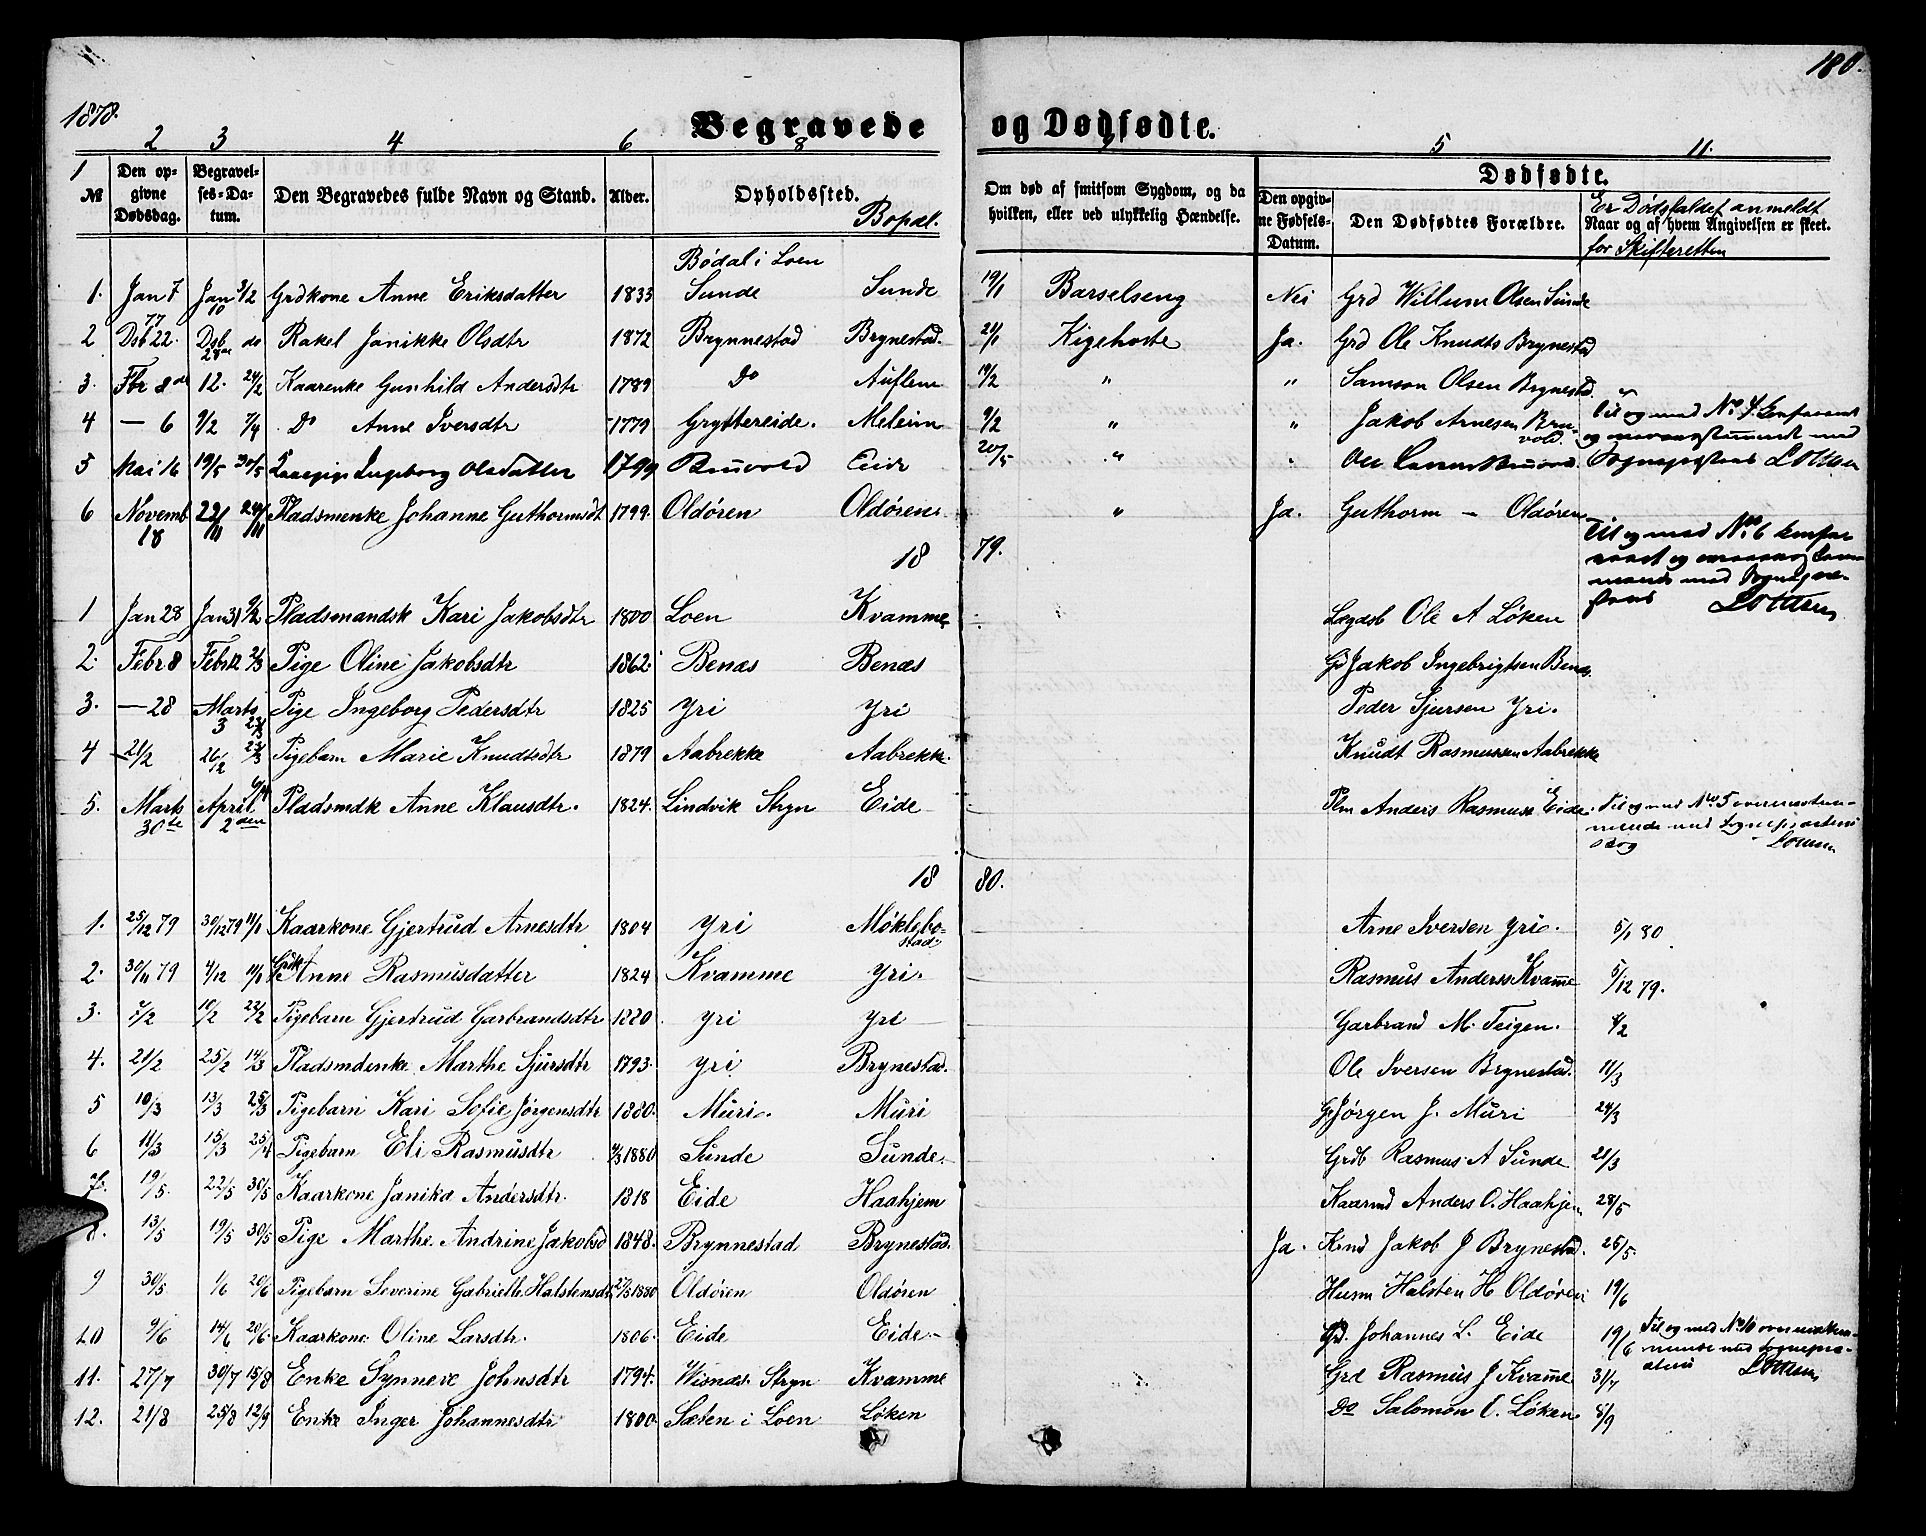 1878.
180.
Begravede og Dødfødte.
2 3 4 6 8 9 5 11.
1
№
Den opgivne Dødsdag.
Begravelses-Datum.
Den Begravedes fulde Navn og Stand.
Alder.
Opholdssted.
Bopæl.
Om død af smitsom Sygdom, og da hvilken, eller ved ulykkelig Hændelse.
Dødfødte.
Den opgivne Fødsels-Datum.
Den Dødfødtes Forældre.
Er Dødsfaldet anmeldt
Naar og af hvem Angivelsen er skeet.
for Skifteretten
Bødal i Loen
1. Jan 7 Jan 10 3/2 Grdkone Anne Eriksdatter 1833 Sunde Sunde 19/1 Barselseng Nei Grd Willum Olsen Sunde
2 77 Dsb 22. Dsb 28de do Rakel Janikke Olsdtr 1872 Brynnestad Brynestad. 21/1 Kighoste Ja. Grd Ole Knudts Brynestad
3. Fbr 8de 12. 24/2 Kaarenke Gunhild Andersdtr 1789 Do Auflem 19/2 " " Samson Olsen Brynestd.
4 — 6 9/2 7/4 Do Anne Iversdtr 1779 Gryttereide. Meleim 9/2 " " Jakob Arnesen Bruvold. Til og med No. 4
5 Mai 16 19/5 30/5 Ingeborg Olsdatter 1799 Bruvold Eide 20/5 " " Ole
6 Novemb 18 22/11 24/11 Pladsmenke Johanne Guthormsdt 1799. Oldøren Oldøren " Ja. Guthorm — Oldøren
Til og med No. 6
1879.
1 Jan 28 Jan 31 9/2 Pladsmandsk Kari Jakobsdtr 1800 Loen Kvamme Lægdsb Ole A Løken
2. Febr 8 Febr 12 2/3 Pige Oline Jakobsdtr 1862. Benæs Benæs Gd Jakob Ingebrigtsen Benæs.
3. — 28 Marts 3 23/3 Pige Ingeborg Pedersdtr 1825 Yri Yri Peder Sjursen Yri.
4 21/2 26/2 23/3 Pigebarn Marie Knudtsdtr 1879 Aabrekke Aabrekke. Knudt Rasmussen Aabrekke
5. Marts 30te April 2den 6/4 Pladsmdk Anne Klausdtr. 1824. Lindvik Stryn Eide Plm Anders Rasmusse Eide. Til og med No 5 overensstemmende med Sognepræstens Bog
1880.
1. 25/12 79 30/12 79 11/1 Kaarkone Gjertrud Arnesdtr 1804 Yri Møklebostad Arne Iversen Yri. 5/1 80
2. 30/11 79 4/12 11/1 Grdk Anne Rasmusdatter 1824 Kvamme Yri. Rasmus Anderss Kvamme 5/12 79.
3. 7/2 10/2 22/2 Pigebarn Gjertrud Garbrandsdtr 1880 Yri Yri Garbrand M. Teigen. 8/2
4. 21/2 25/2 14/3 Pladsmdenke Marthe Sjursdtr 1793. Yri Brynestad. Ole Iversen Brynestad. 11/3
5 10/3 13/3 25/3 Pigebarn Kari Sofie Jørgensdtr 1880. Muri. Muri G. Jørgen J. Muri 24/3
6 11/3 15/3 25/4 Pigebarn Eli Rasmusdtr 1880 Sunde Sunde. Grdb Rasmus A Sunde 21/3
7. 19/5. 22/5 30/5 Kaarkone Janika Andersdtr. 1818 Eide Haahjem Kaarmd Anders O. Haahjem 28/5
8. 13/5 19/5 30/5 Pige Marthe Andrine Jakobsd 1848. Brynnestad Brynestad. Ja. Krmd Jakob J Brynestad. 25/5.
9 30/5 1/6 20/6 Pigebarn Severine Gabrielle Halstensdtr. 27/5 1880 Oldøren Oldøren Husm Halsten H Oldøren 19/6
10 9/6 14/6 20/6. Kaarkone Oline Larsdtr. 1806. Eide Eide. Gd. Johannes L. Eide 19/6 Til og med No 10
11. 27/7 30/7 15/8 Enke Synneve Johnsdtr 1794. Wisnæs. Stryn Kvamme Grd Rasmus J Kvamme 31/7
12. 21/8 25/8 12/9 Enke Inger Johannesdtr 1800. Sæten i Loen Løken Do Salomon C. Løken 8/9